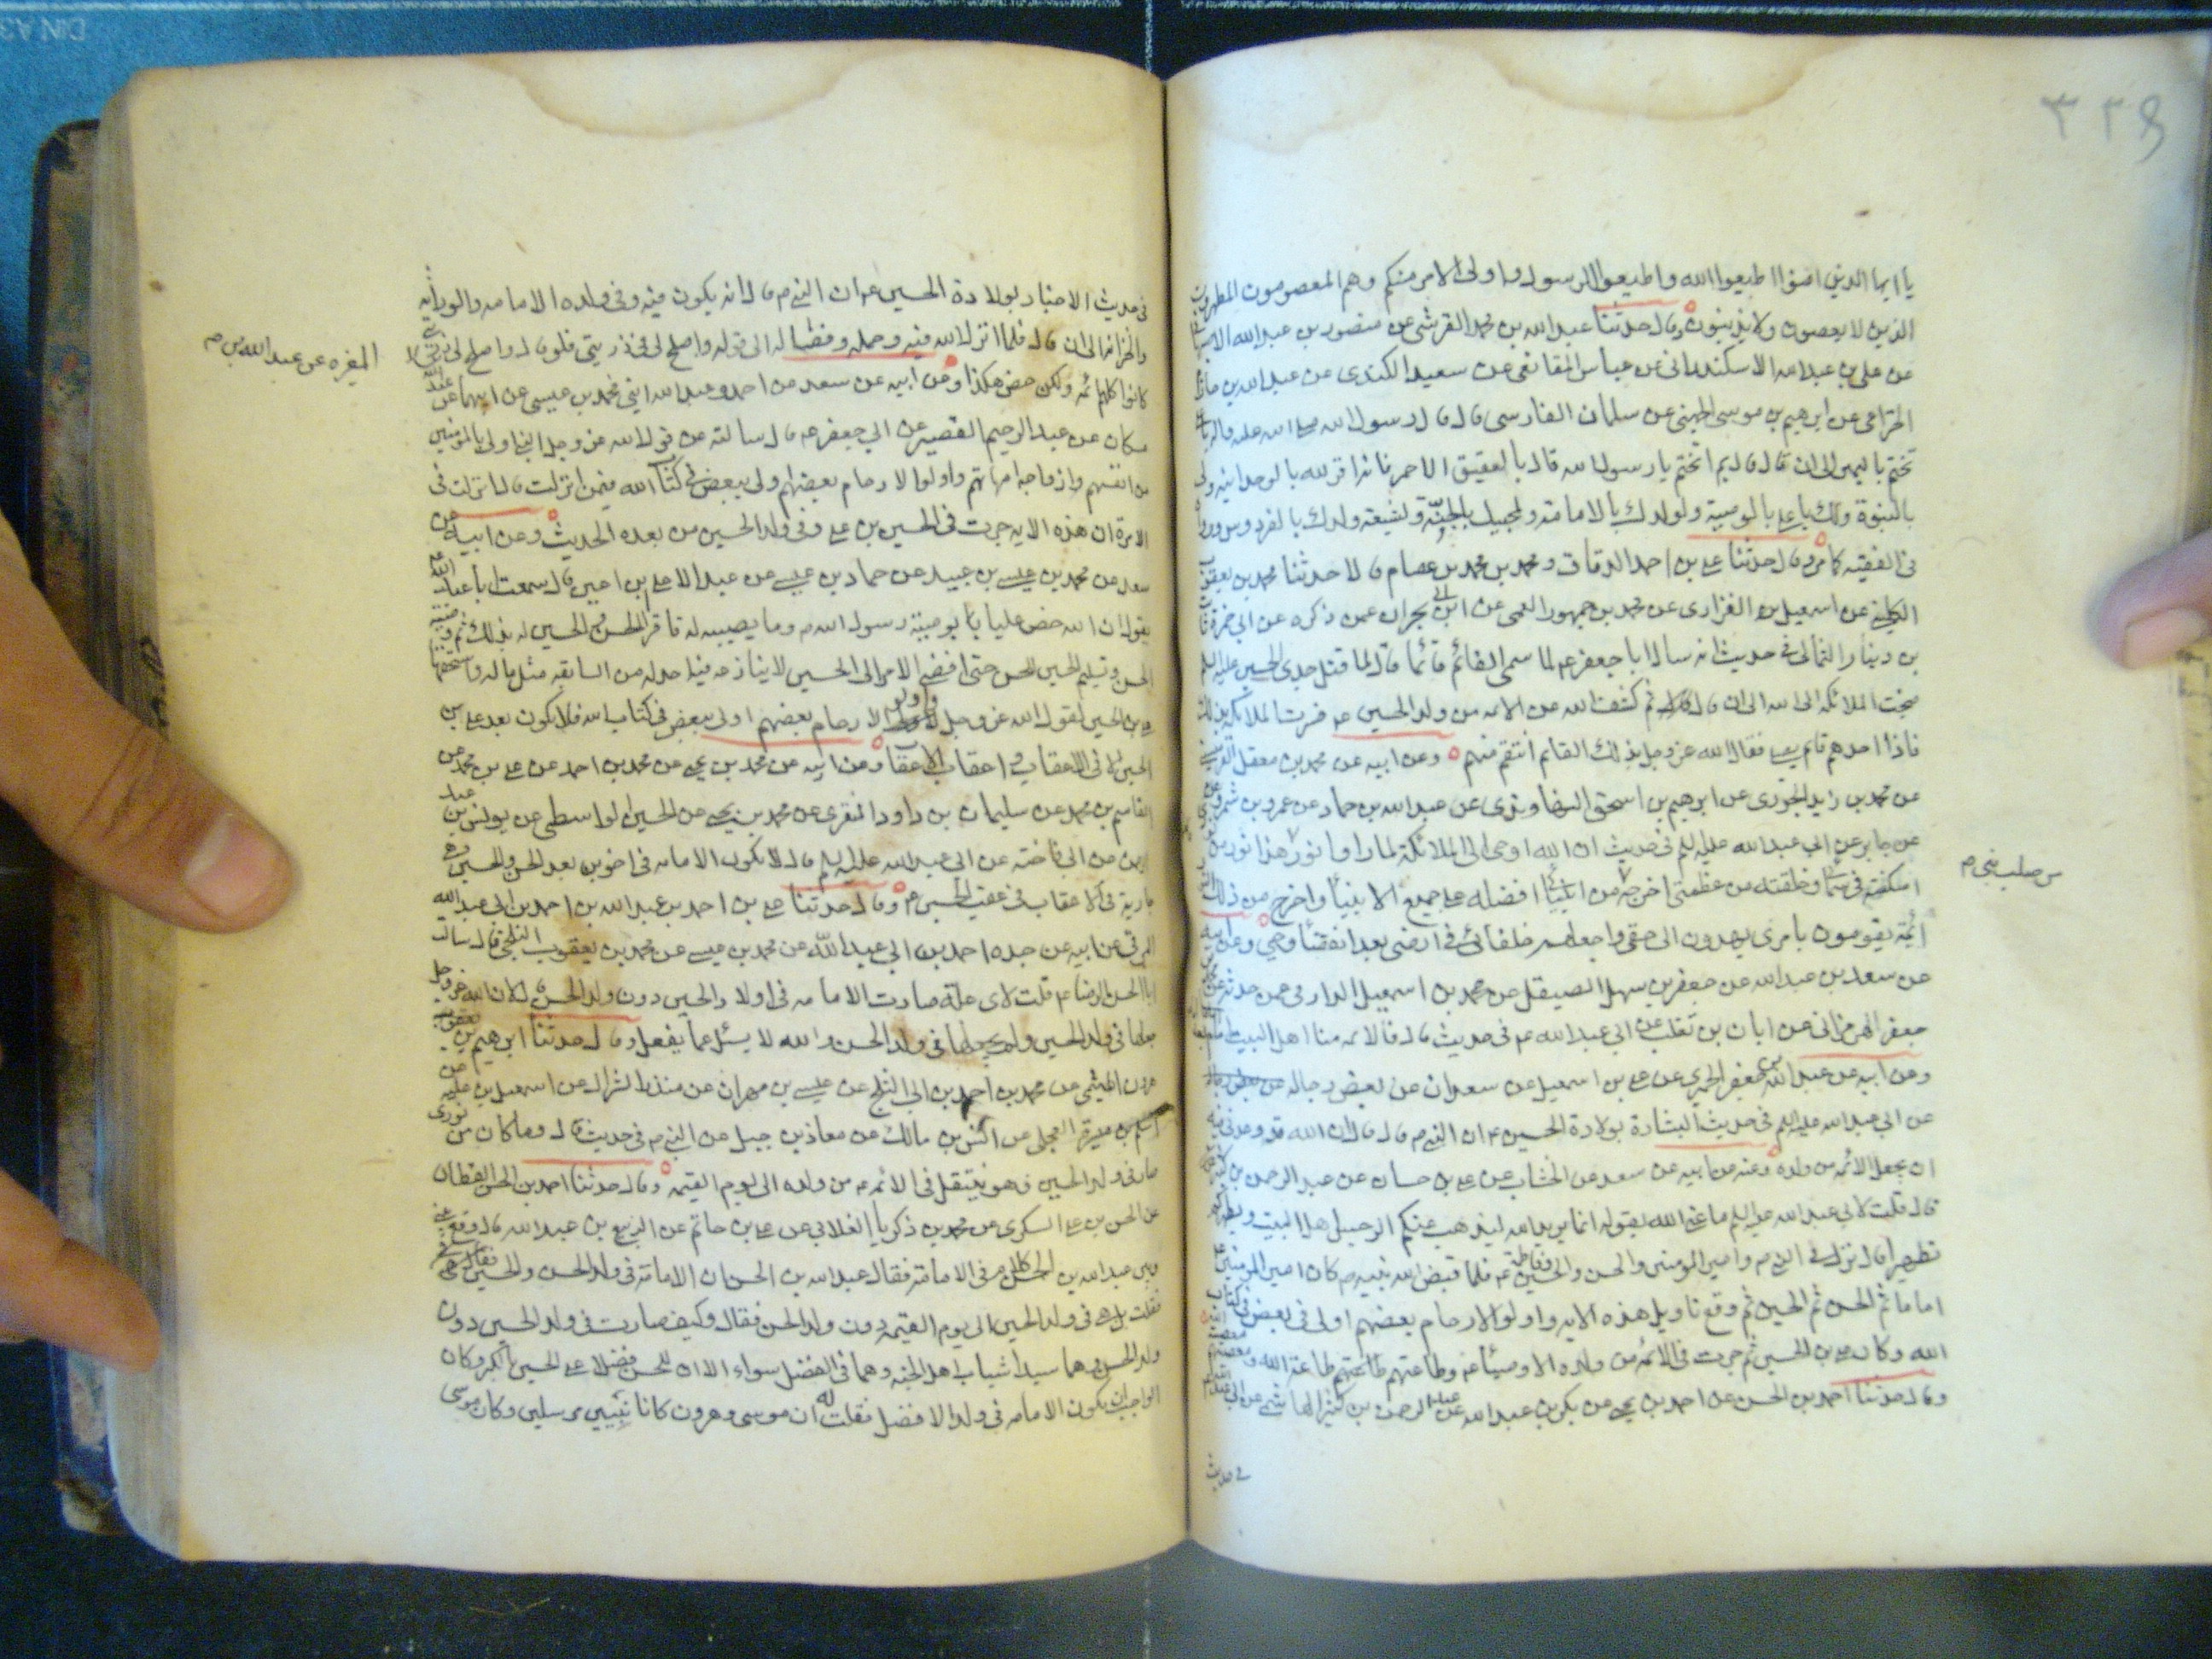 ٣٢٩
يا ايها الذين امنوا اطيعوا الله واطيعوا الرسول واولى الامر منكم وهم المعصومون المطهرون
الذين لا يعصون ولا يذنبون وقال حدثنا عبد الله بن محمد القرشى عن منصور بن عبد الله
عن على بن عبد الله الاسكندرانى عن عباس المقانعى عن سعيد الكندى عن عبد الله بن حازم
الخزاعى عن ابرهيم بن موسى الجهنى عن سلمان الفارسى قال قال رسول الله صلى الله عليه واله يا على
تختم باليمين الى ان قال قال بم اتختم يا رسول الله قال بالعقيق الاحمر فانه اقر لله بالوحدانيه ولى
بالنبوة ولك يا على بالوصية ولولدك بالامامة ولمحبيك بالجنّة ولشيعة ولدك بالفردوس
فى الفقيه كامر وقال حدثنا على بن احمد الدقاق ومحمد بن محمد بن عصام قالا حدثنا محمد بن يعقوب
الكلينى عن اسمعيل بن الفزارى عن محمد بن جمهور العمى عن ابن ابى نجران عمن ذكره عن ابى حمزة ثابت
بن دينار الثمالى فى حديث انه سال ابا جعفر ع لما سمى القائم قائما قال لما قتل جدى الحسين عليه السلم
ضجت الملائكه الى الله الى ان قال ثم كشف الله عن الائمه من ولد الحسين ع فسرت الملائكه بذلك
فاذا احدهم قائم يصلى فقال الله عز وجل بذلك القايم انتقم منهم وعن ابيه عن محمد بن معقل القرميسينى
عن محمد بن زايد الجزرى عن ابرهيم بن اسحق النهاوندى عن عبد الله بن حماد عن عمرو بن شمر
عن جابر عن ابى عبد الله عليه السلم فى حديث ان الله اوحى الى الملائكة لما راوا نورا هذا نور من نورى
اسكنته فى سمائى وخلقته من عظمتى اخرجه من انبيائى افضله على جميع الانبياء واخرج من ذلك النور
من صلب نبى م
ائمة يقومون بامرى يهدون الى حقى واجعلهم خلفائى فى ارضى بعد انقضاء وحيى وعن ابيه
عن سعد بن عبد الله عن جعفر بن سهل الصيقل عن محمد بن اسمعيل الدارمى عمن حدثه عن محمد بن
جعفر الهرمزانى عن ابان بن تغلب عن ابى عبد الله ع فى حديث قال فالائمه منا اهل البيت
ومن ابيه عن عبد الله بن جعفر الحميرى عن على بن اسمعيل عن سعدان عن بعض رجاله
عن ابى عبد الله عليه السلم فى حديث البشارة بولادة الحسين ع ان النبى م قال قال ان الله قد وعدنى فيه
ان يجعل الائمه من ولده وعنه من ابيه عن سعد عن الخشاب عن على بن حسان عن عبد الرحمن بن كثير
قال قلت لابى عبد الله عليه السلم ما عنى الله بقوله انما يريد الله ليذهب عنكم الرجس اهل البيت ويطهركم
تطهيرا قال نزلت فى النبى م وامير المؤمنين والحسن والحسين وفاطمة ع فلما قبض الله نبيه م كان امير المؤمنين
اماما ثم الحسن ثم الحسين ثم وقع تاويل هذه الايه واولوا الارحام بعضهم اولى ببعض فى كتاب
الله وكان على بن الحسين ثم جرت فى الائمه من ولده الاوصياء ع وطاعتهم طاعة الله ومعصيتهم معصية الله
وقال حدثنا احمد بن الحسن عن احمد بن يحيى عن بكر بن عبد الله عن عبد الرحمن بن كثير الهاشمى عن ابى عبد الله
فى حديث
فى حديث الاخبار بولادة الحسين ع ان النبى م قال انه يكون فيه وفى ولده الامامه والوراثه
والخزانه الى ان قال فلما انزل الله فيه وحمله وفصاله الى قوله واصلح لى فى ذريتى فلو قال واصلح لى ذريتى
كانوا كلهم ائمه ولكن خص هكذا وعن ابيه عن سعد عن احمد وعبد الله ابنى محمد بن عيسى عن ابيهما عن عبد الله
المغيره عن عبد الله بن م
مسكان عن عبد الرحيم القصير عن ابى جعفر ع قال سالته عن قول الله عز وجل النبى اولى بالمؤمنين
من انفسهم وازواجه امهاتهم واولوا الارحام بعضهم اولى ببعض فى كتاب الله فيمن انزلت قال نزلت فى
الامرة ان هذه الايه جرت فى الحسين بن على وفى ولد الحسين من بعده الحديث وعن ابيه عن
سعد عن محمد بن عيسى بن عبيد عن حماد بن عيسى عن عبد الاعلى بن اعين قال سمعت ابا عبد الله
يقول ان الله خص عليا بوصية رسول الله م وما يصيبه له فاقر الحسن والحسين له بذلك ثم وصيته
الحسن وتسليم الحسين للحسن حتى افضى الامر الى الحسين لا ينازعه فيه احد له من السابقه مثل ماله واستحقها
على بن الحسين لقول الله عز وجل واولوا الارحام بعضهم اولى ببعض فى كتاب الله فلا يكون بعد على بن
الحسين الا فى الاعقاب واعقاب الاعقاب وعن ابيه عن محمد بن يحيى عن محمد بن احمد عن على بن محمد عن
القاسم بن محمد عن سليمان بن داود المنقرى عن محمد بن يحيى عن الحسين الواسطى عن يونس بن عبد
الرحمن عن ابى فاخته عن ابى عبد الله عليه السلم قال لا تكون الامامه فى اخوين بعد الحسن والحسين وهى
جارية فى الاعقاب فى عقب الحسين ع وقال حدثنا على بن احمد بن عبد الله بن احمد بن ابى عبد الله
البرقى عن ابيه عن جده احمد بن ابى عبد الله عن محمد بن عيسى عن محمد بن يعقوب البلخى قال سالت
ابا الحسن الرضا ع قلت لاى علة صارت الامامه فى اولاد الحسين دون ولد الحسن قال لان الله عز وجل
جعلها فى ولد الحسين ولم يجعلها فى ولد الحسن والله لا يسئل عما يفعل وقال حدثنا ابرهيم بن
هرون الهيثمى عن محمد بن احمد بن ابى الثلج عن عيسى بن مهران عن منذر الشراك عن اسمعيل بن عليه عن
اسلم بن ميسرة العجلى عن انس بن مالك عن معاذ بن جبل عن النبى م فى حديث قال وما كان من نورى
صار فى ولد الحسين فهو ينتقل فى الائمه من ولده الى يوم القيمه وقال حدثنا احمد بن الحسن القطان
عن الحسن بن على السكرى عن محمد بن ذكريا الغلابى عن على بن حاتم عن الربيع بن عبد الله قال وقع بينى
وبين عبد الله بن الحسن كلام فى الامامة فقال عبد الله بن الحسن ان الامامة فى ولد الحسن والحسين
فقلت بل هى فى ولد الحسين الى يوم القيمه دون ولد الحسن فقال وكيف صارت فى ولد الحسين دون
ولد الحسن وهما سيدا شباب اهل الجنه وهما فى الفضل سواء الا ان للحسن فضلا على الحسين بالكبر وكان
الواجب ان يكون الامامه فى ولد الافضل فقلت له ان موسى وهرون كانا نبيين مرسلين وكان موسى